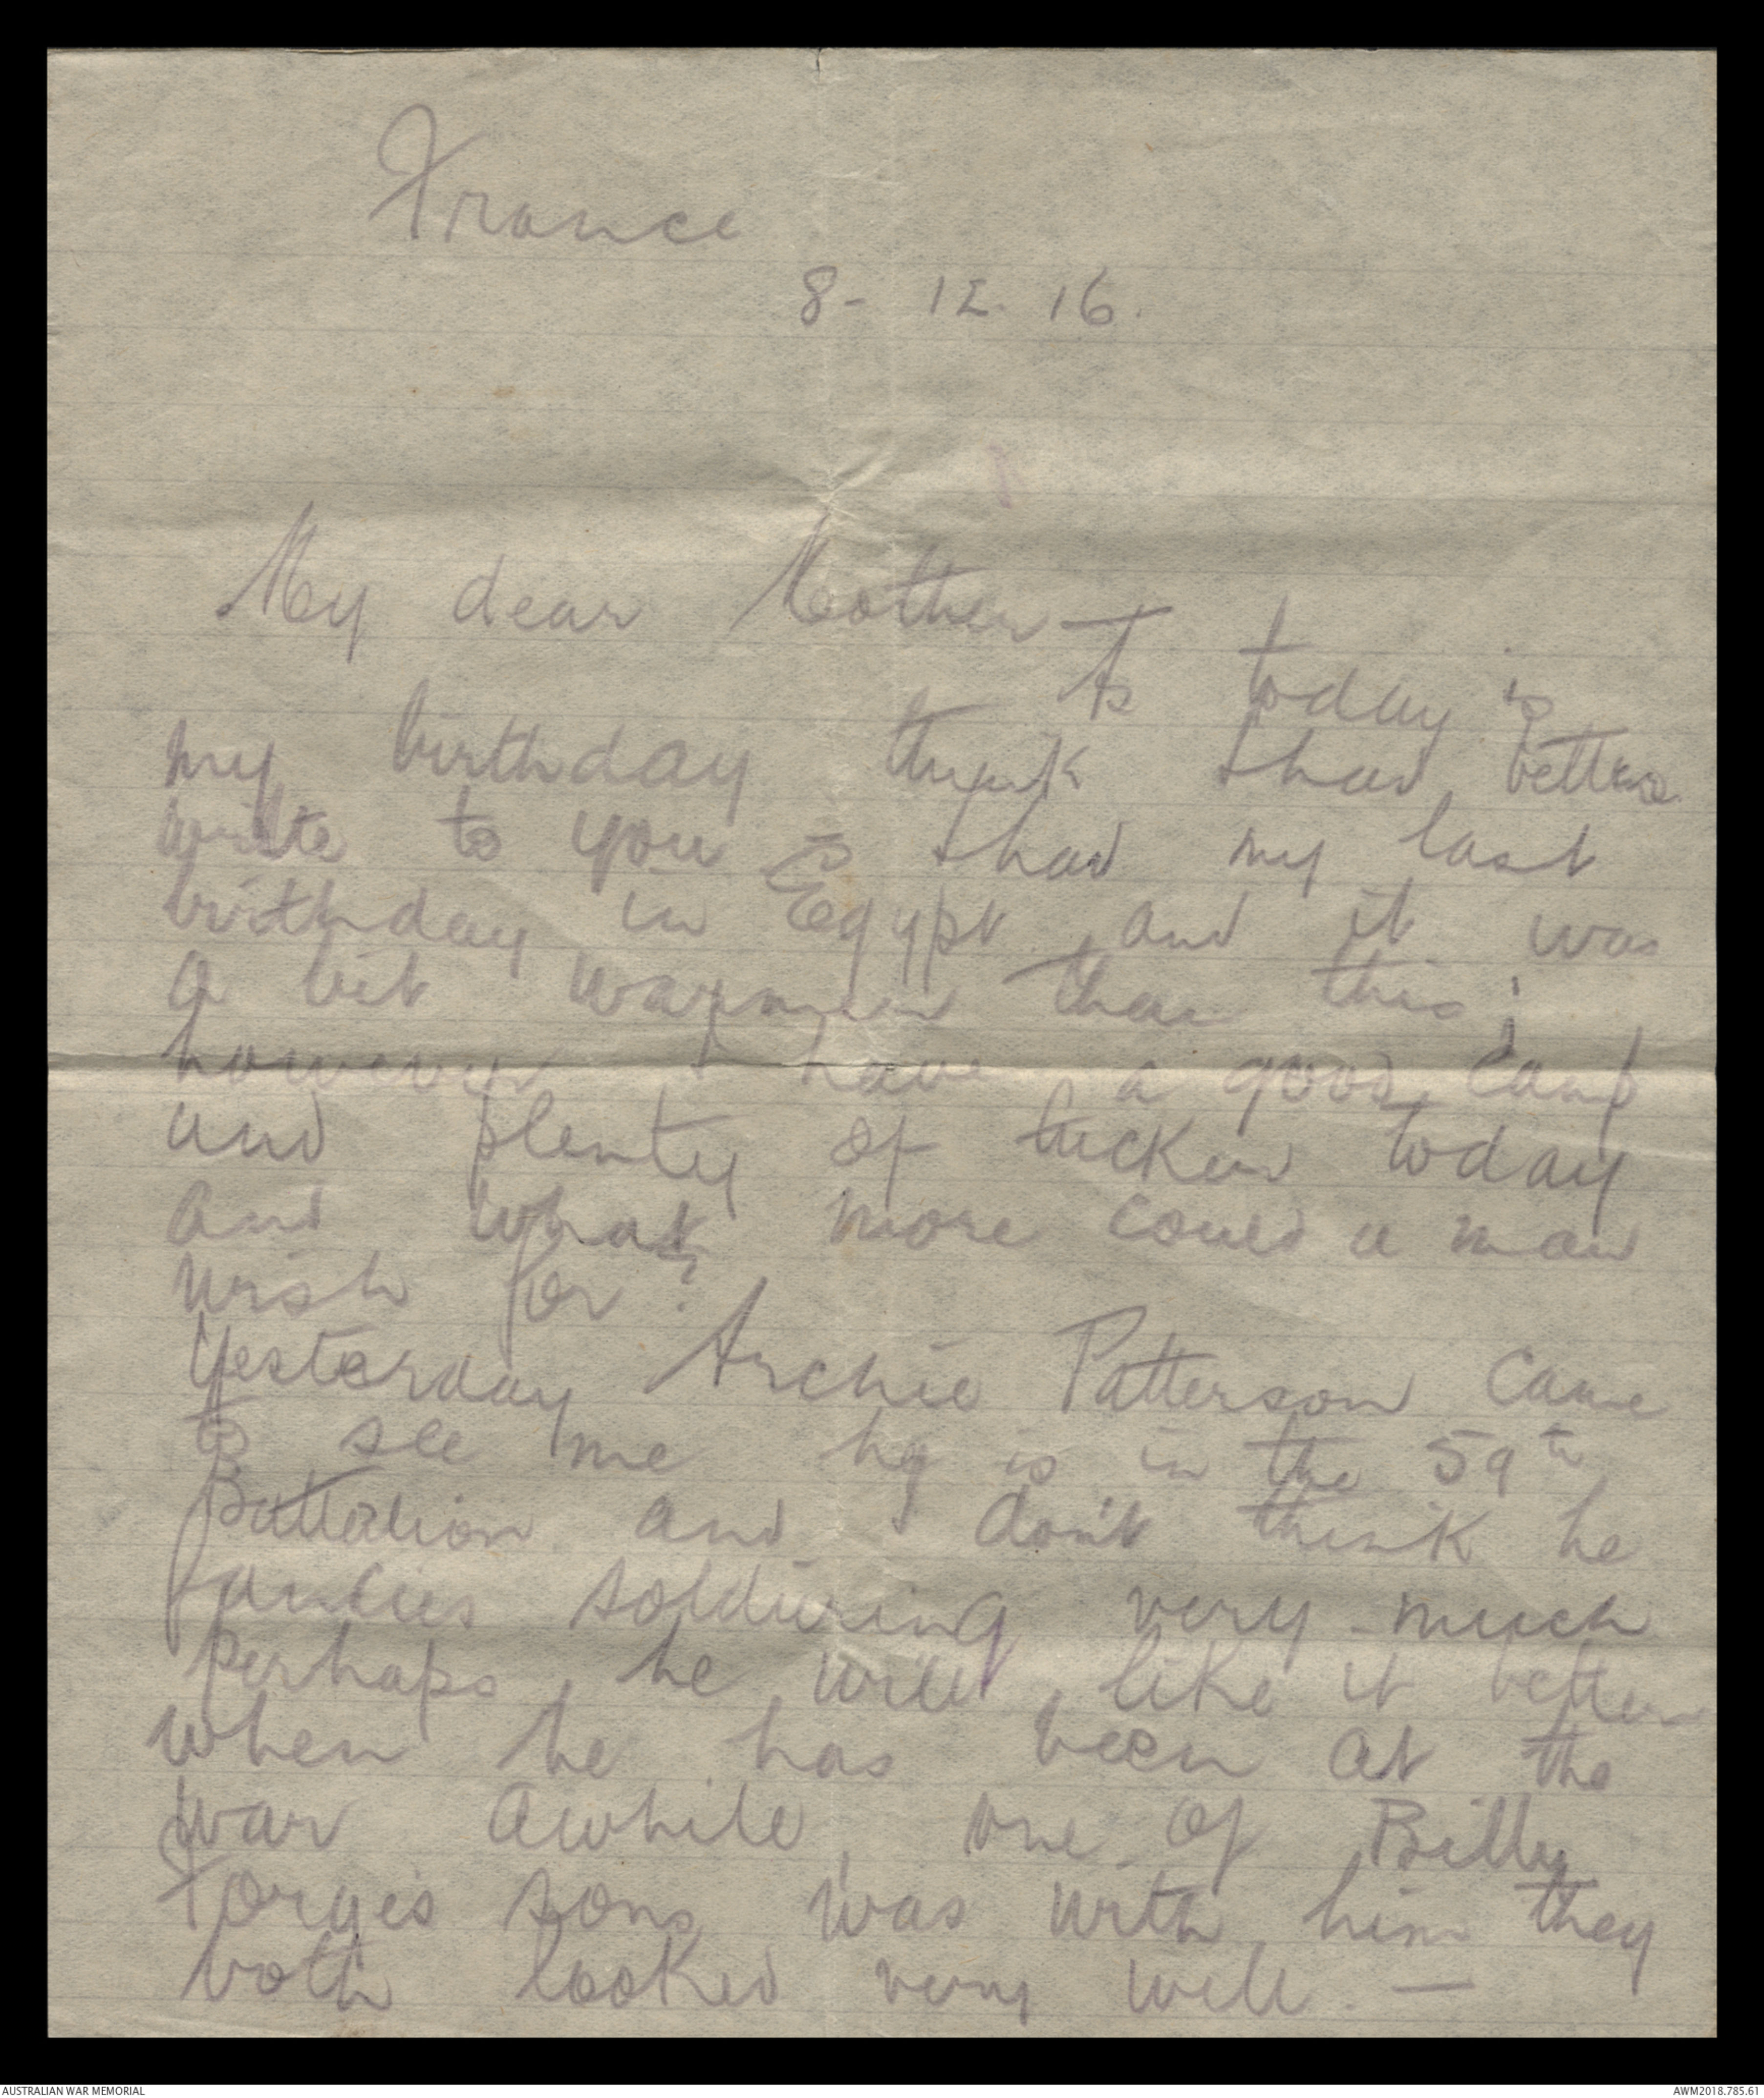 France
8- 12. 16.
My dear Mother
As today is
my birthday think I had better
write to you I had my last
birthday in Egypt and it was
a bit warmer than this;
however I have a good camp
and plenty of tucker today
and what more could a man
wish for?
Yesterday Archie Patterson came
to see me he is in the 59th
Battalion and I don't think he
fancies soldiering very much
perhaps he will like it better
when he has been at the
war awhile, one of Billy
Forge's sons was with him they
both looked very well. —
AUSTRALIAN WAR MEMORIAL
AWM2018.785.61